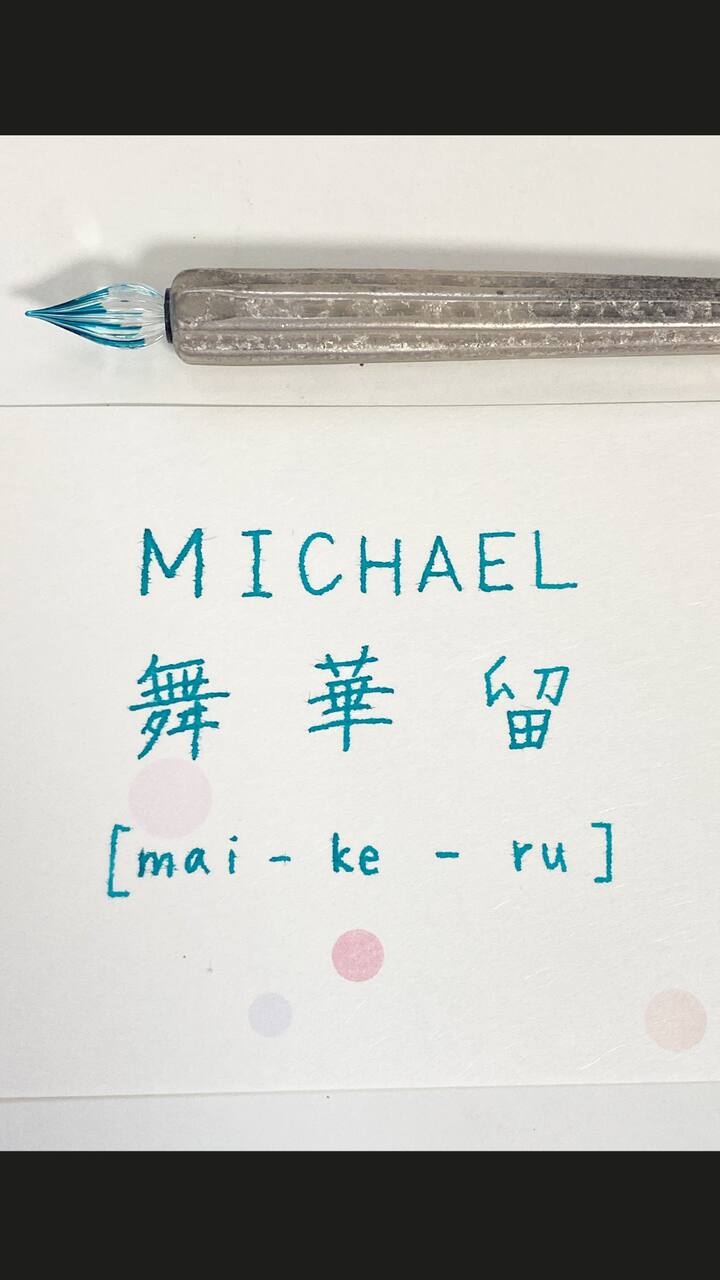 MICHAEL
舞 華 留
[mai - ke - ru]